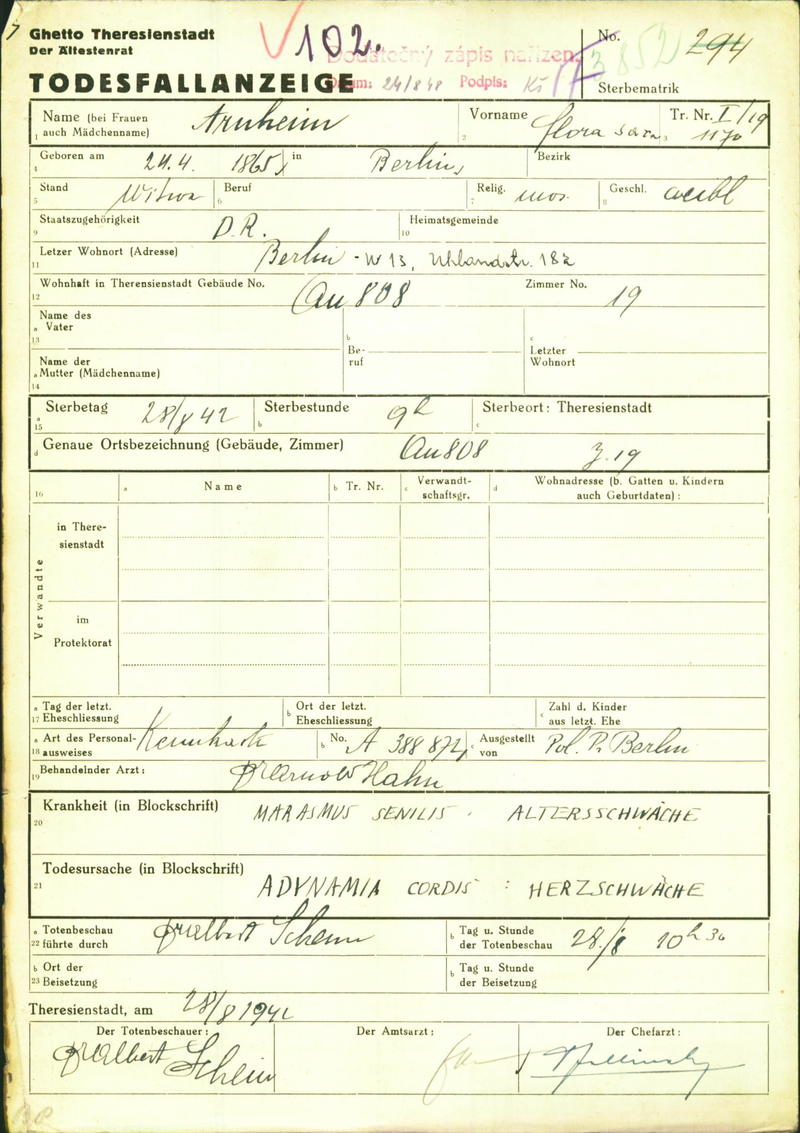 Ghetto Theresienstadt
Der Ältestenrat
102.
Dodatečný zápis nařízen.
Datum: 24/8 48 Podpis:
No. 294
3852
TODESFALLANZEIGE
Sterbematrik
Name (bei Frauen auch Mädchenname) Arnheim
1
Vorname Flora Sara
2
Tr. Nr. I/19 1170
3
Geboren am 24.4. 1865 in Berlin
4
Bezirk
Stand Witwe
5
Beruf
6
Relig. mos.
7
Geschl. weibl
8
Staatszugehörigkeit D.R.
9
Heimatsgemeinde
10
Letzer Wohnort (Adresse) Berlin - W 15, Uhlandstr. 182
11
Wohnhaft in Therensienstadt Gebäude No. Au 808
12
Zimmer No. 19
Name des
a Vater
13
b Be-
ruf
c Letzter
Wohnort
Name der
a Mutter (Mädchenname)
14
a Sterbetag 28/8 42
15
b Sterbestunde 9h
c Sterbeort: Theresienstadt
d Genaue Ortsbezeichnung (Gebäude, Zimmer) Au 808 Z. 19
16
a Name
b Tr. Nr.
c Verwandt-
schaftsgr.
d Wohnadresse (b. Gatten u. Kindern
auch Geburtdaten) :
Verwandte
in There-
sienstadt
im
Protektorat
a Tag der letzt.
17 Eheschliessung
b Ort der letzt.
Eheschliessung
c Zahl d. Kinder
aus letzt. Ehe
a Art des Personal-
18 ausweises Kennkarte
b No. A 388 872
c Ausgestellt
von Pol. P. Berlin
Behandelnder Arzt: Dr Arnold Hahn
19
Krankheit (in Blockschrift) MARASMUS SENILIS . ALTERSSCHWÄCHE
20
Todesursache (in Blockschrift)
21
ADYNAMIA CORDIS : HERZSCHWÄCHE
a Totenbeschau
22 führte durch Dr Albert Schein
b Tag u. Stunde
der Totenbeschau 28./8 10h 30
b Ort der
23 Beisetzung
b Tag u. Stunde
der Beisetzung
Theresienstadt, am 28/8 1942
Der Totenbeschauer:
Dr Albert Schein
Der Amtsarzt:
Der Chefarzt: